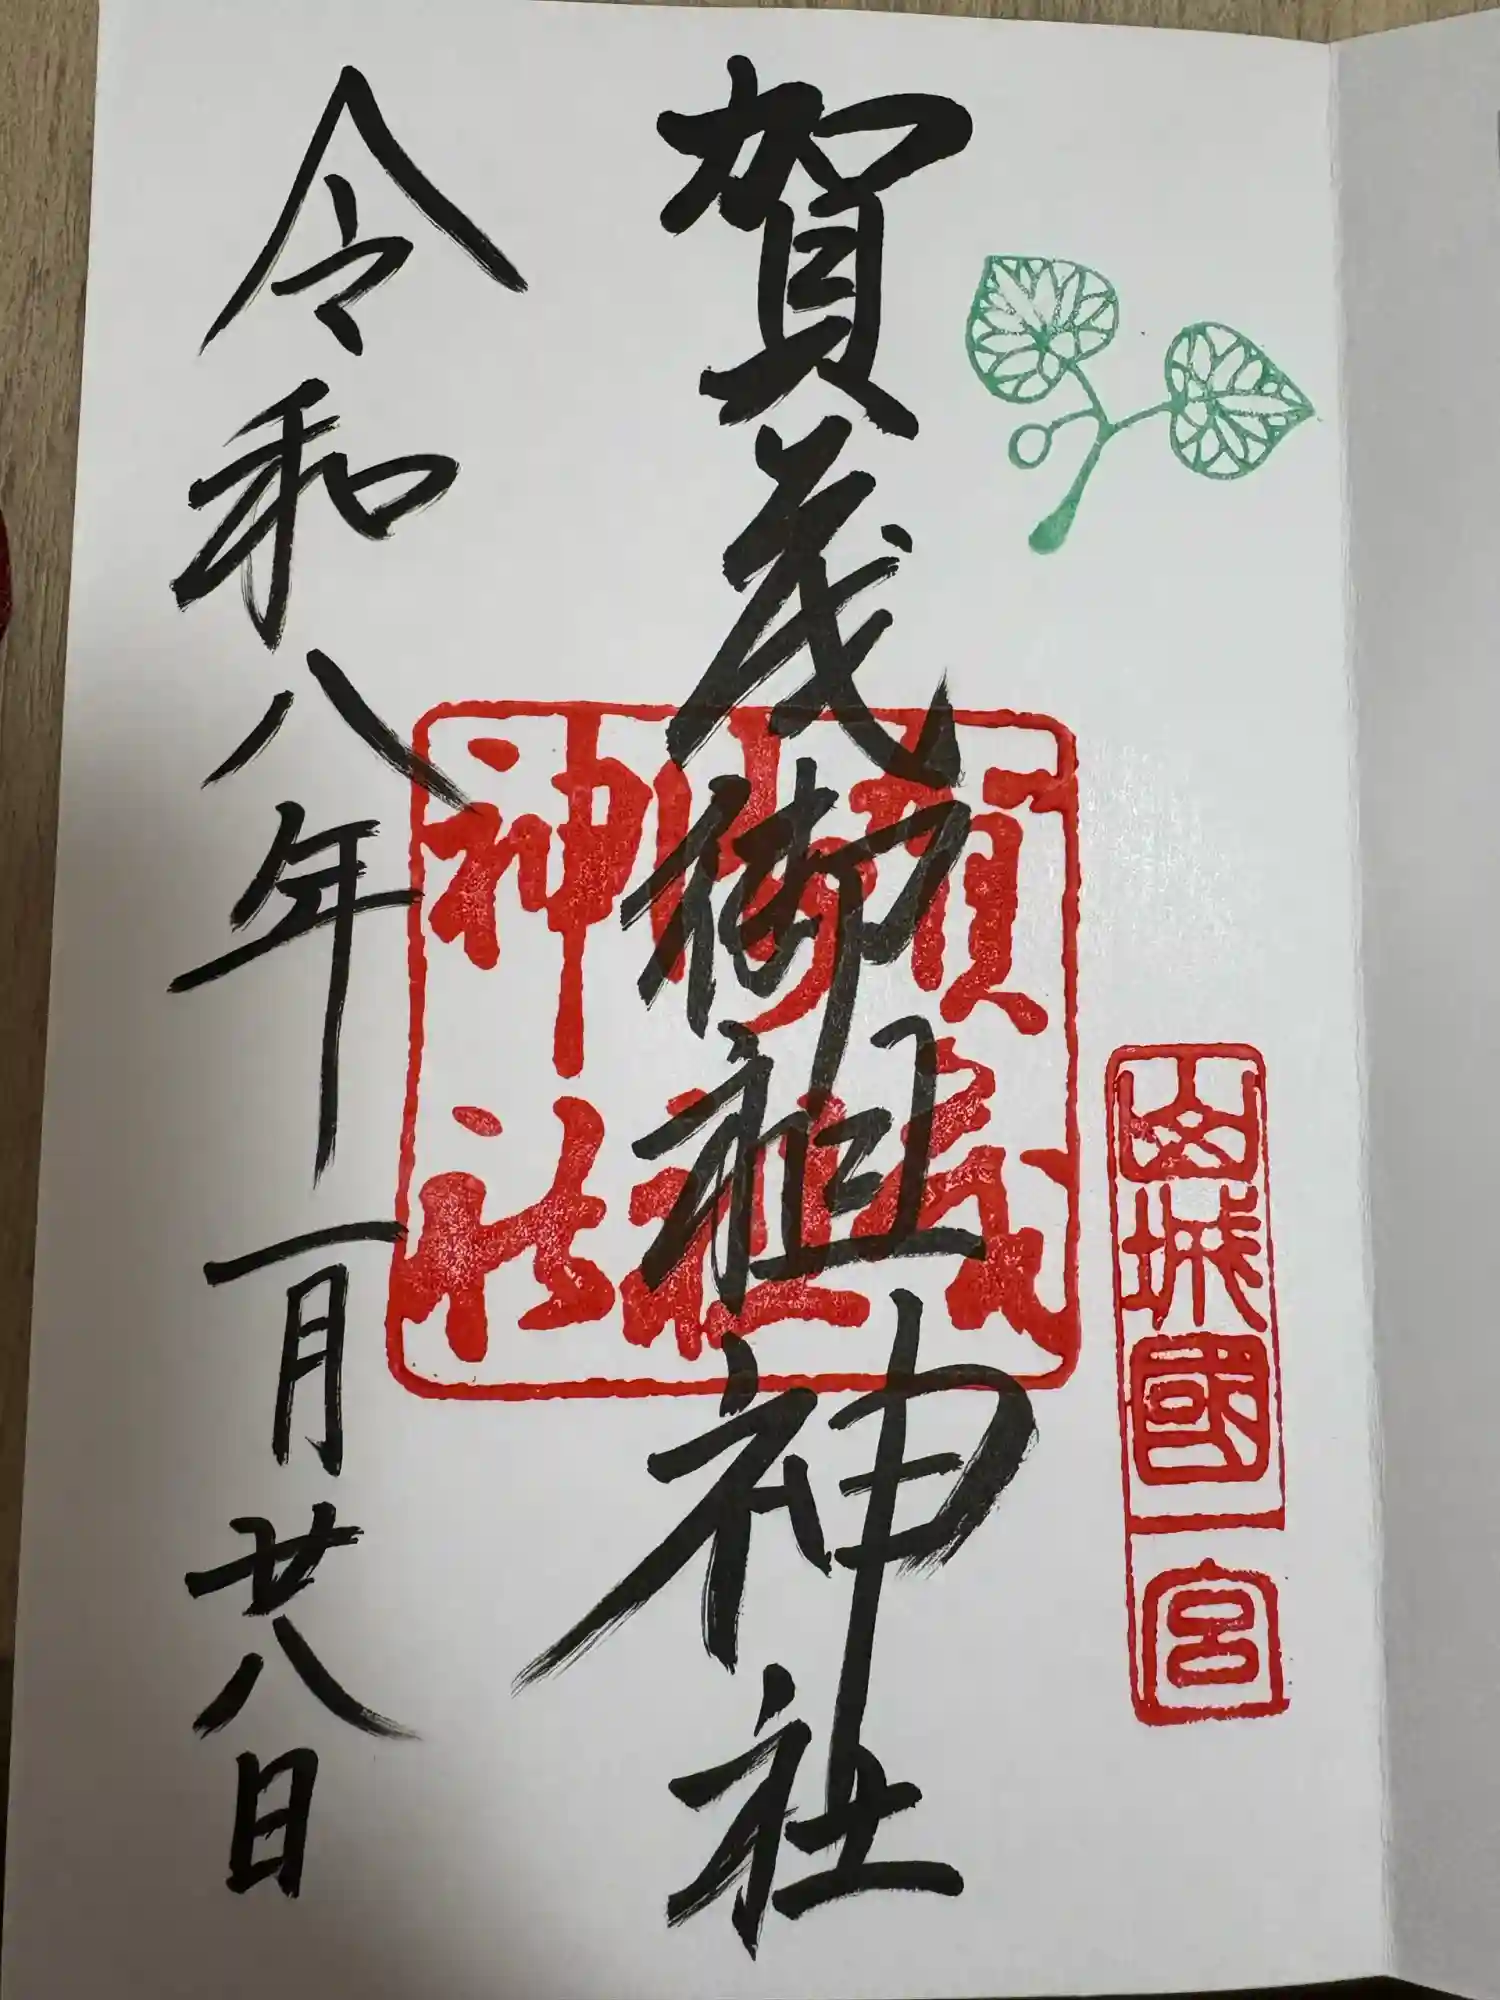 山城國一宮
賀茂御祖神社
賀茂御祖神社
令和八年一月廿八日